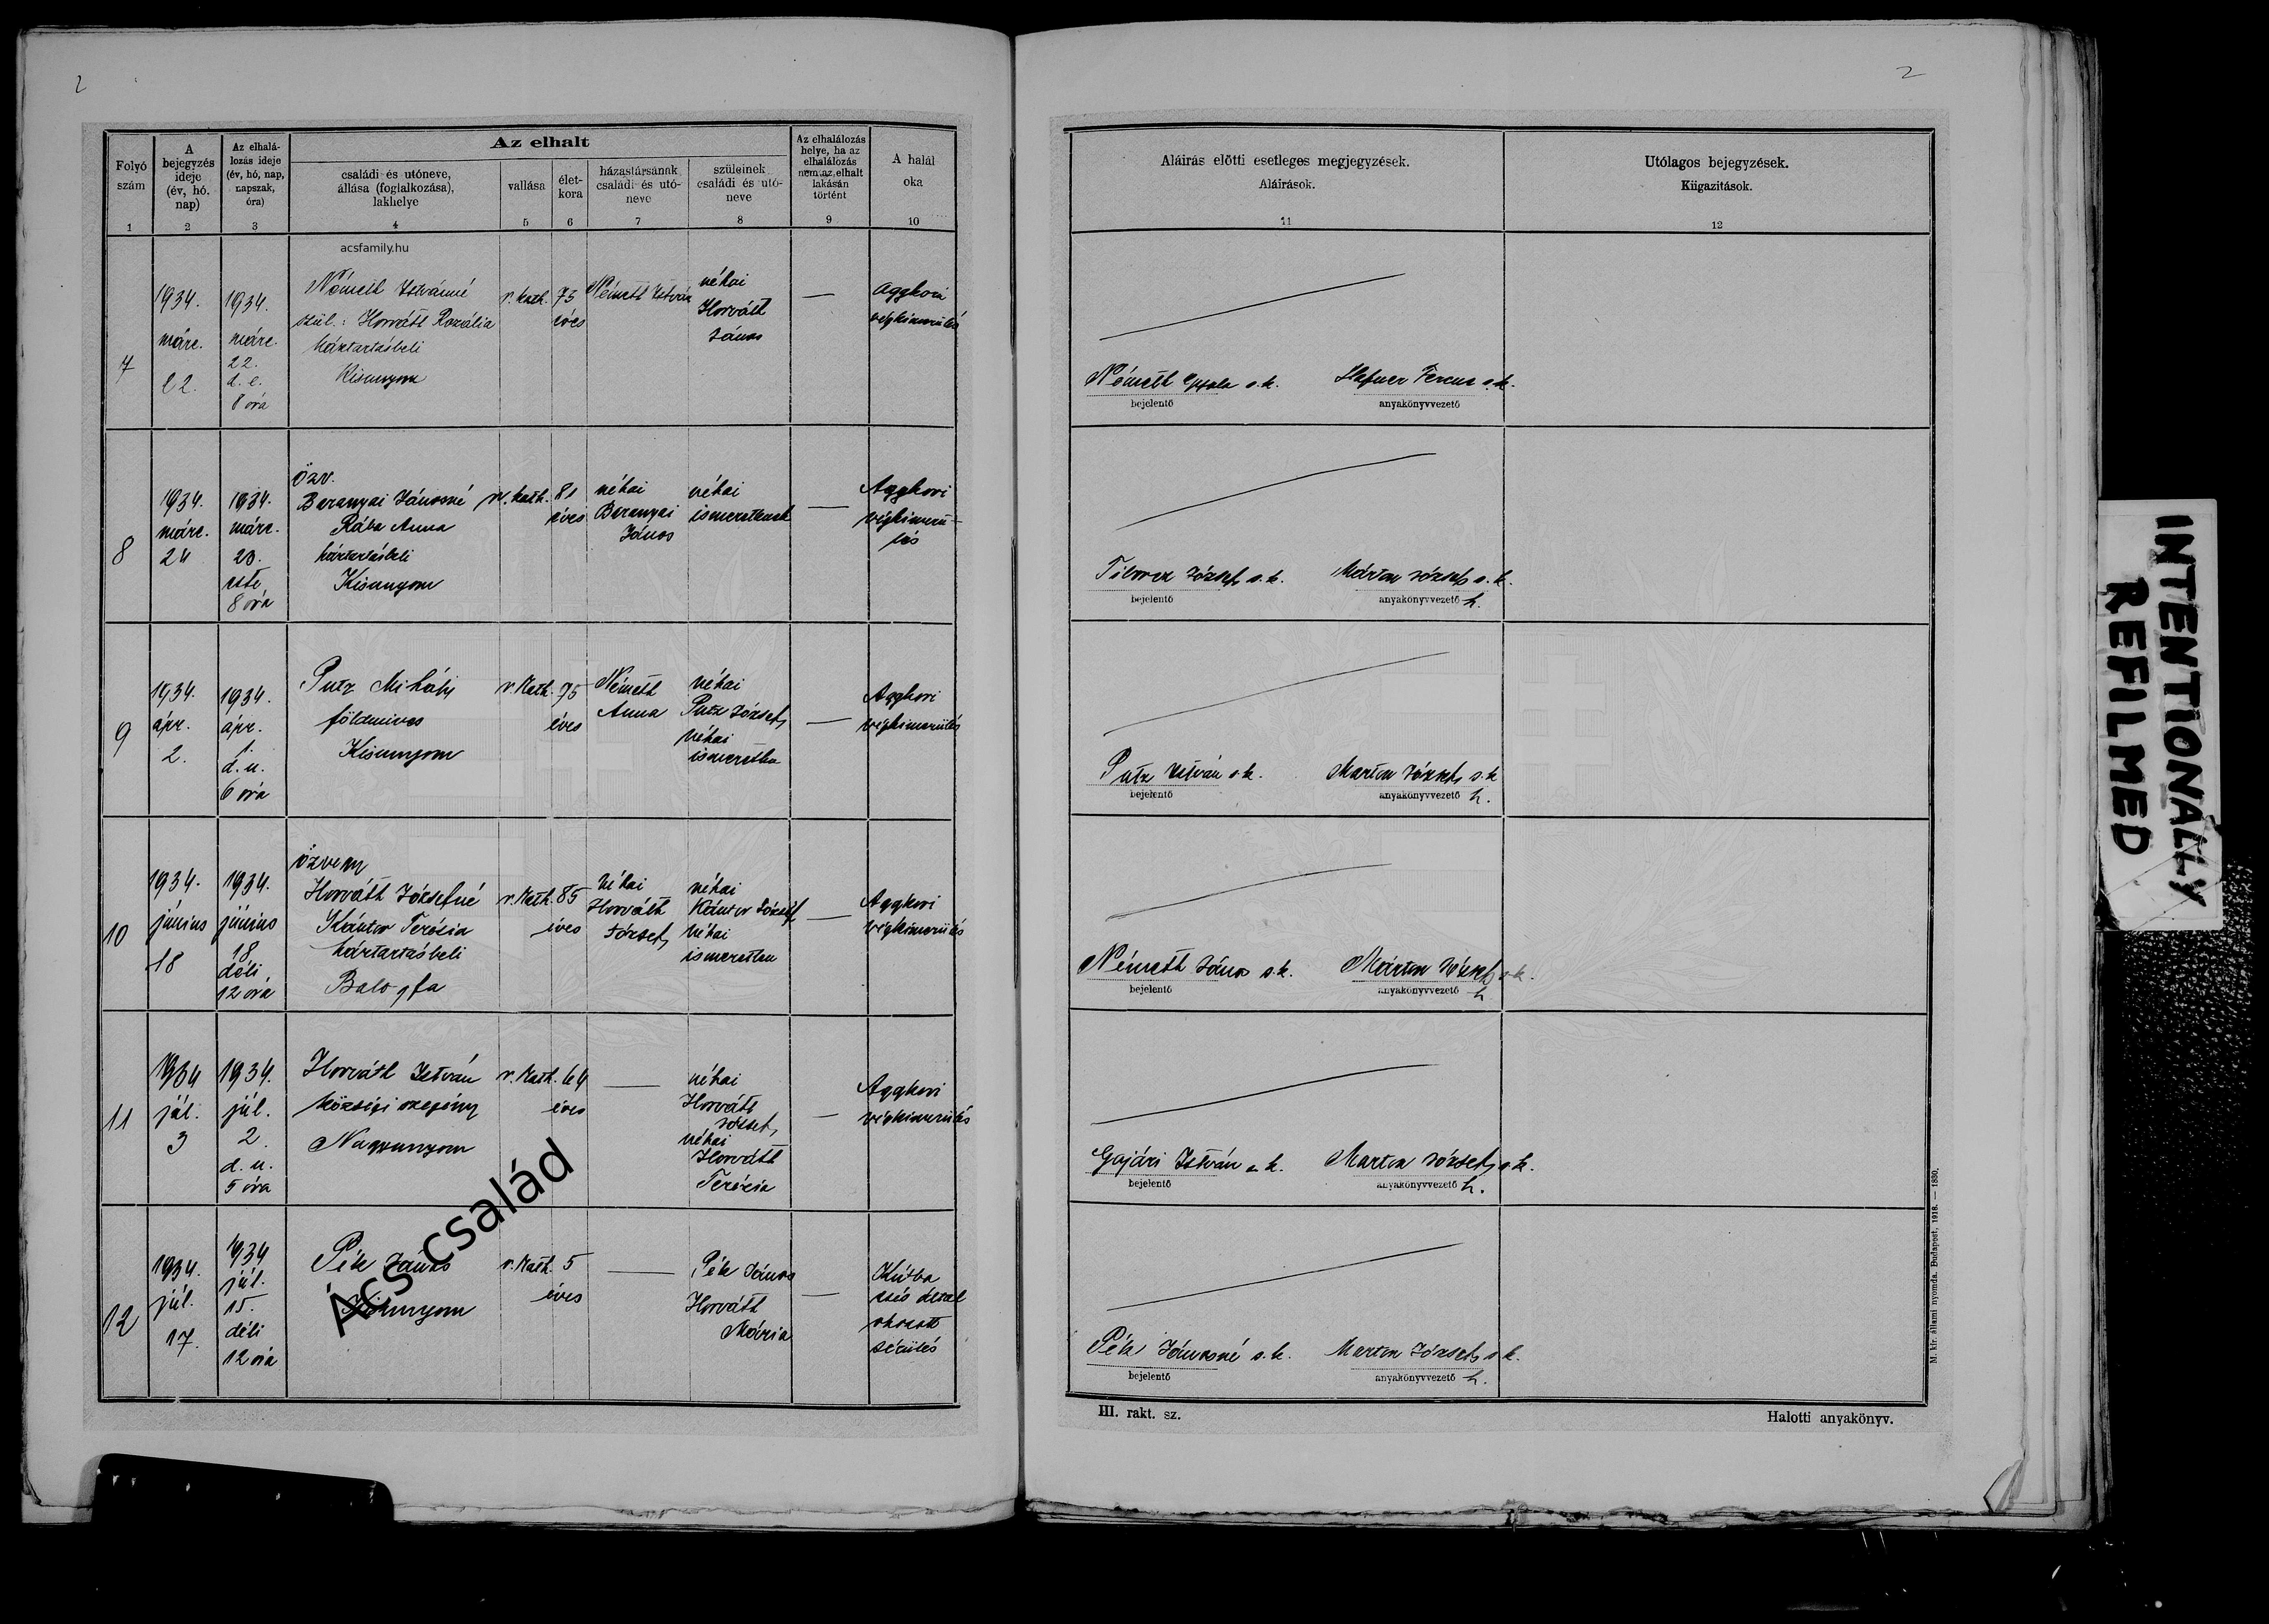 2
2
Az elhalt
Folyó szám
A bejegyzés ideje (év, hó. nap)
Az elhalá-lozás ideje (év, hó, nap, napszak, óra)
családi és utóneve, állása (foglalkozása), lakhelye
vallása
élet-kora
házastársának családi és utó-neve
szüleinek családi és utó-neve
Az elhalálozás helye, ha az elhalálozás nem az elhalt lakásán történt
A halál oka
1 2 3 4 5 6 7 8 9 10
Aláirás előtti esetleges megjegyzések.
Aláirások.
11
Utólagos bejegyzések.
Kiigazitások.
12
acsfamily.hu
7
1934. márc. 22.
1934. márc. 22. d. e. 8 óra
Németh Istvánné
szül.: Horváth Rozália
háztartásbeli
Kisunyom
r. kath.
75 éves
Németh István
néhai Horváth János
—
Aggkori végkimerülés
Németh s. k.
bejelentő
Hafner Ferenc s. k.
anyakönyvvezető
8
1934. márc. 24
1934. márc. 23. este 8 óra
özv.
Baranyai Jánosné
Rába Anna
háztartásbeli
Kisunyom
r. kath.
81 éves
néhai Baranyai János
néhai ismeretlenek
—
Aggkori végkimerü-lés
József s. k.
bejelentő
Márton József s. k.
anyakönyvvezető h.
9
1934. ápr. 2.
1934. ápr. 1. d. u. 6 óra
Putz Mihály
földmives
Kisunyom
r. kath.
75 éves
Németh Anna
néhai Putz József,
néhai ismeretlen
—
Aggkori végkimerülés
Putz István s. k.
bejelentő
Marton József s. k.
anyakönyvvezető h.
10
1934. június 18
1934. június 18 déli 12 óra
özvegy
Horváth Józsefné
Kántor Terézia
háztartásbeli
Balogfa
r. kath.
85 éves
néhai Horváth József
néhai Kántor József
néhai ismeretlen
—
Aggkori végkimerülés
Németh János s. k.
bejelentő
Márton József s. k.
anyakönyvvezető h
11
1934 júl. 3
1934. júl. 2. d. u. 5 óra
Horváth István
községi szegény
Nagyunyom
r. kath.
64 éves
—
néhai Horváth József,
néhai Horváth Terézia
—
Aggkori végkimerülés
Gajári István s. k.
bejelentő
Marton József s. k.
anyakönyvvezető h.
12
1934. júl. 17.
1934 júl. 15. déli 12 óra
Pék János
Kisunyom
r. kath.
5 éves
—
Pék János
Horváth Mária
—
Kútba esés által okozott sérülés
Pék Jánosné s. k.
bejelentő
Marton József s. k.
anyakönyvvezető h.
Ács család
III. rakt. sz.
Halotti anyakönyv.
M. kir. állami nyomda. Budapest, 1918. — 1830.
INTENTIONALLY
REFILMED